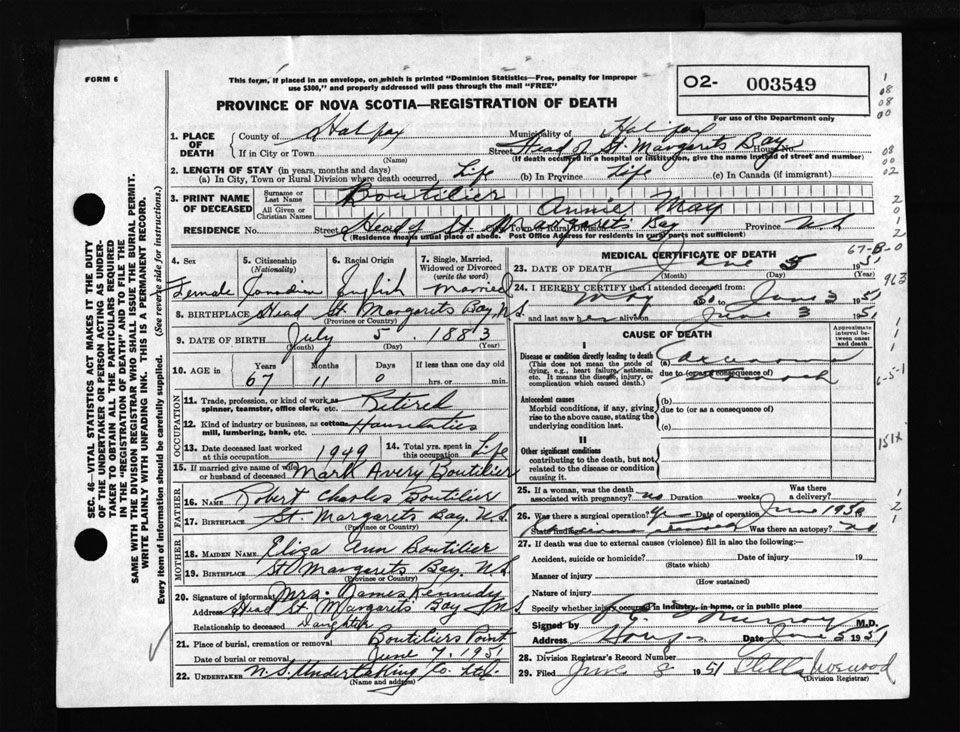 FORM 6
This form, if placed in an envelope, on which is printed "Dominion Statistics—Free, penalty for improper
use $300," and properly addressed will pass through the mail "FREE"
O2- 003549
For use of the Department only
PROVINCE OF NOVA SCOTIA—REGISTRATION OF DEATH
SEC. 46—VITAL STATISTICS ACT MAKES IT THE DUTY
OF THE UNDERTAKER OR PERSON ACTING AS UNDER-
TAKER TO OBTAIN ALL THE PARTICULARS REQUIRED
IN THE "REGISTRATION OF DEATH" AND TO FILE THE
SAME WITH THE DIVISION REGISTRAR WHO SHALL ISSUE THE BURIAL PERMIT.
WRITE PLAINLY WITH UNFADING INK. THIS IS A PERMANENT RECORD.
Every item of information should be carefully supplied. (See reverse side for instructions.)
1. PLACE OF DEATH
County of Halifax Municipality of Halifax
If in City or Town (Name) Street Head of St. Margarits Bay House No.
(If death occurred in a hospital or institution, give the name instead of street and number)
2. LENGTH OF STAY (in years, months and days)
(a) In City, Town or Rural Division where death occurred Life (b) In Province Life (c) In Canada (if immigrant)
3. PRINT NAME OF DECEASED
Surname or Last Name Boutilier
All Given or Christian Names Annie May
RESIDENCE No. Street Head of St. Margarits Bay Town or Rural Division Province N.S.
(Residence means usual place of abode. Post Office Address for residents in rural parts not sufficient)
4. Sex Female
5. Citizenship (Nationality) Canadian
6. Racial Origin English
7. Single, Married, Widowed or Divorced (write the word) Married
8. BIRTHPLACE Head St. Margarits Bay, N.S.
(Province or Country)
9. DATE OF BIRTH July 5 1883
(Month) (Day) (Year)
10. AGE in Years Months Days If less than one day old
67 11 0 hrs. or min.
OCCUPATION
11. Trade, profession, or kind of work as spinner, teamster, office clerk, etc. Retired
12. Kind of industry or business, as cotton mill, lumbering, bank, etc.
13. Date deceased last worked at this occupation 1949
14. Total yrs. spent in this occupation Life
15. If married give name of wife or husband of deceased Mark Avery Boutilier
FATHER
16. NAME Robert Charles Boutilier
17. BIRTHPLACE St. Margarits Bay. N.S.
(Province or Country)
MOTHER
18. MAIDEN NAME Eliza Ann Boutilier
19. BIRTHPLACE St Margarits Bay. N.S.
(Province or Country)
20. Signature of informant Mrs. James Kennedy
Address Head St. Margarits Bay N.S.
Relationship to deceased Daughter
21. Place of burial, cremation or removal Boutiliers Point
Date of burial or removal June 7, 1951
22. UNDERTAKER N.S. Undertaking Co. Ltd.
(Name and address)
MEDICAL CERTIFICATE OF DEATH
67-B-0
23. DATE OF DEATH June 5 1951
(Month) (Day) (Year)
24. I HEREBY CERTIFY that I attended deceased from:
May to June 3 1951
and last saw her alive on June 3 1951
CAUSE OF DEATH
Approximate interval between onset and death
I
Disease or condition directly leading to death
(This does not mean the mode of dying, e.g., heart failure, asthenia, etc. It means the disease, injury, or complication which caused death.)
(a) Carcinoma
due to (or as consequence of) Stomach
Antecedent causes
Morbid conditions, if any, giving rise to the above cause, stating the underlying condition last.
(b)
due to (or as a consequence of)
(c)
II
Other significant conditions
contributing to the death, but not related to the disease or condition causing it.
151X
25. If a woman, was the death associated with pregnancy? no Duration weeks Was there a delivery?
26. Was there a surgical operation? Date of operation June
State findings Was there an autopsy? no
27. If death was due to external causes (violence) fill in also the following:—
Accident, suicide or homicide? Date of injury 19
(State which)
Manner of injury
(How sustained)
Nature of injury
Specify whether injury occurred in industry, in home, or in public place
Signed by Murray M.D.
Address Date June 5 1951
28. Division Registrar's Record Number
29. Filed June 8 1951 Stella
(Division Registrar)